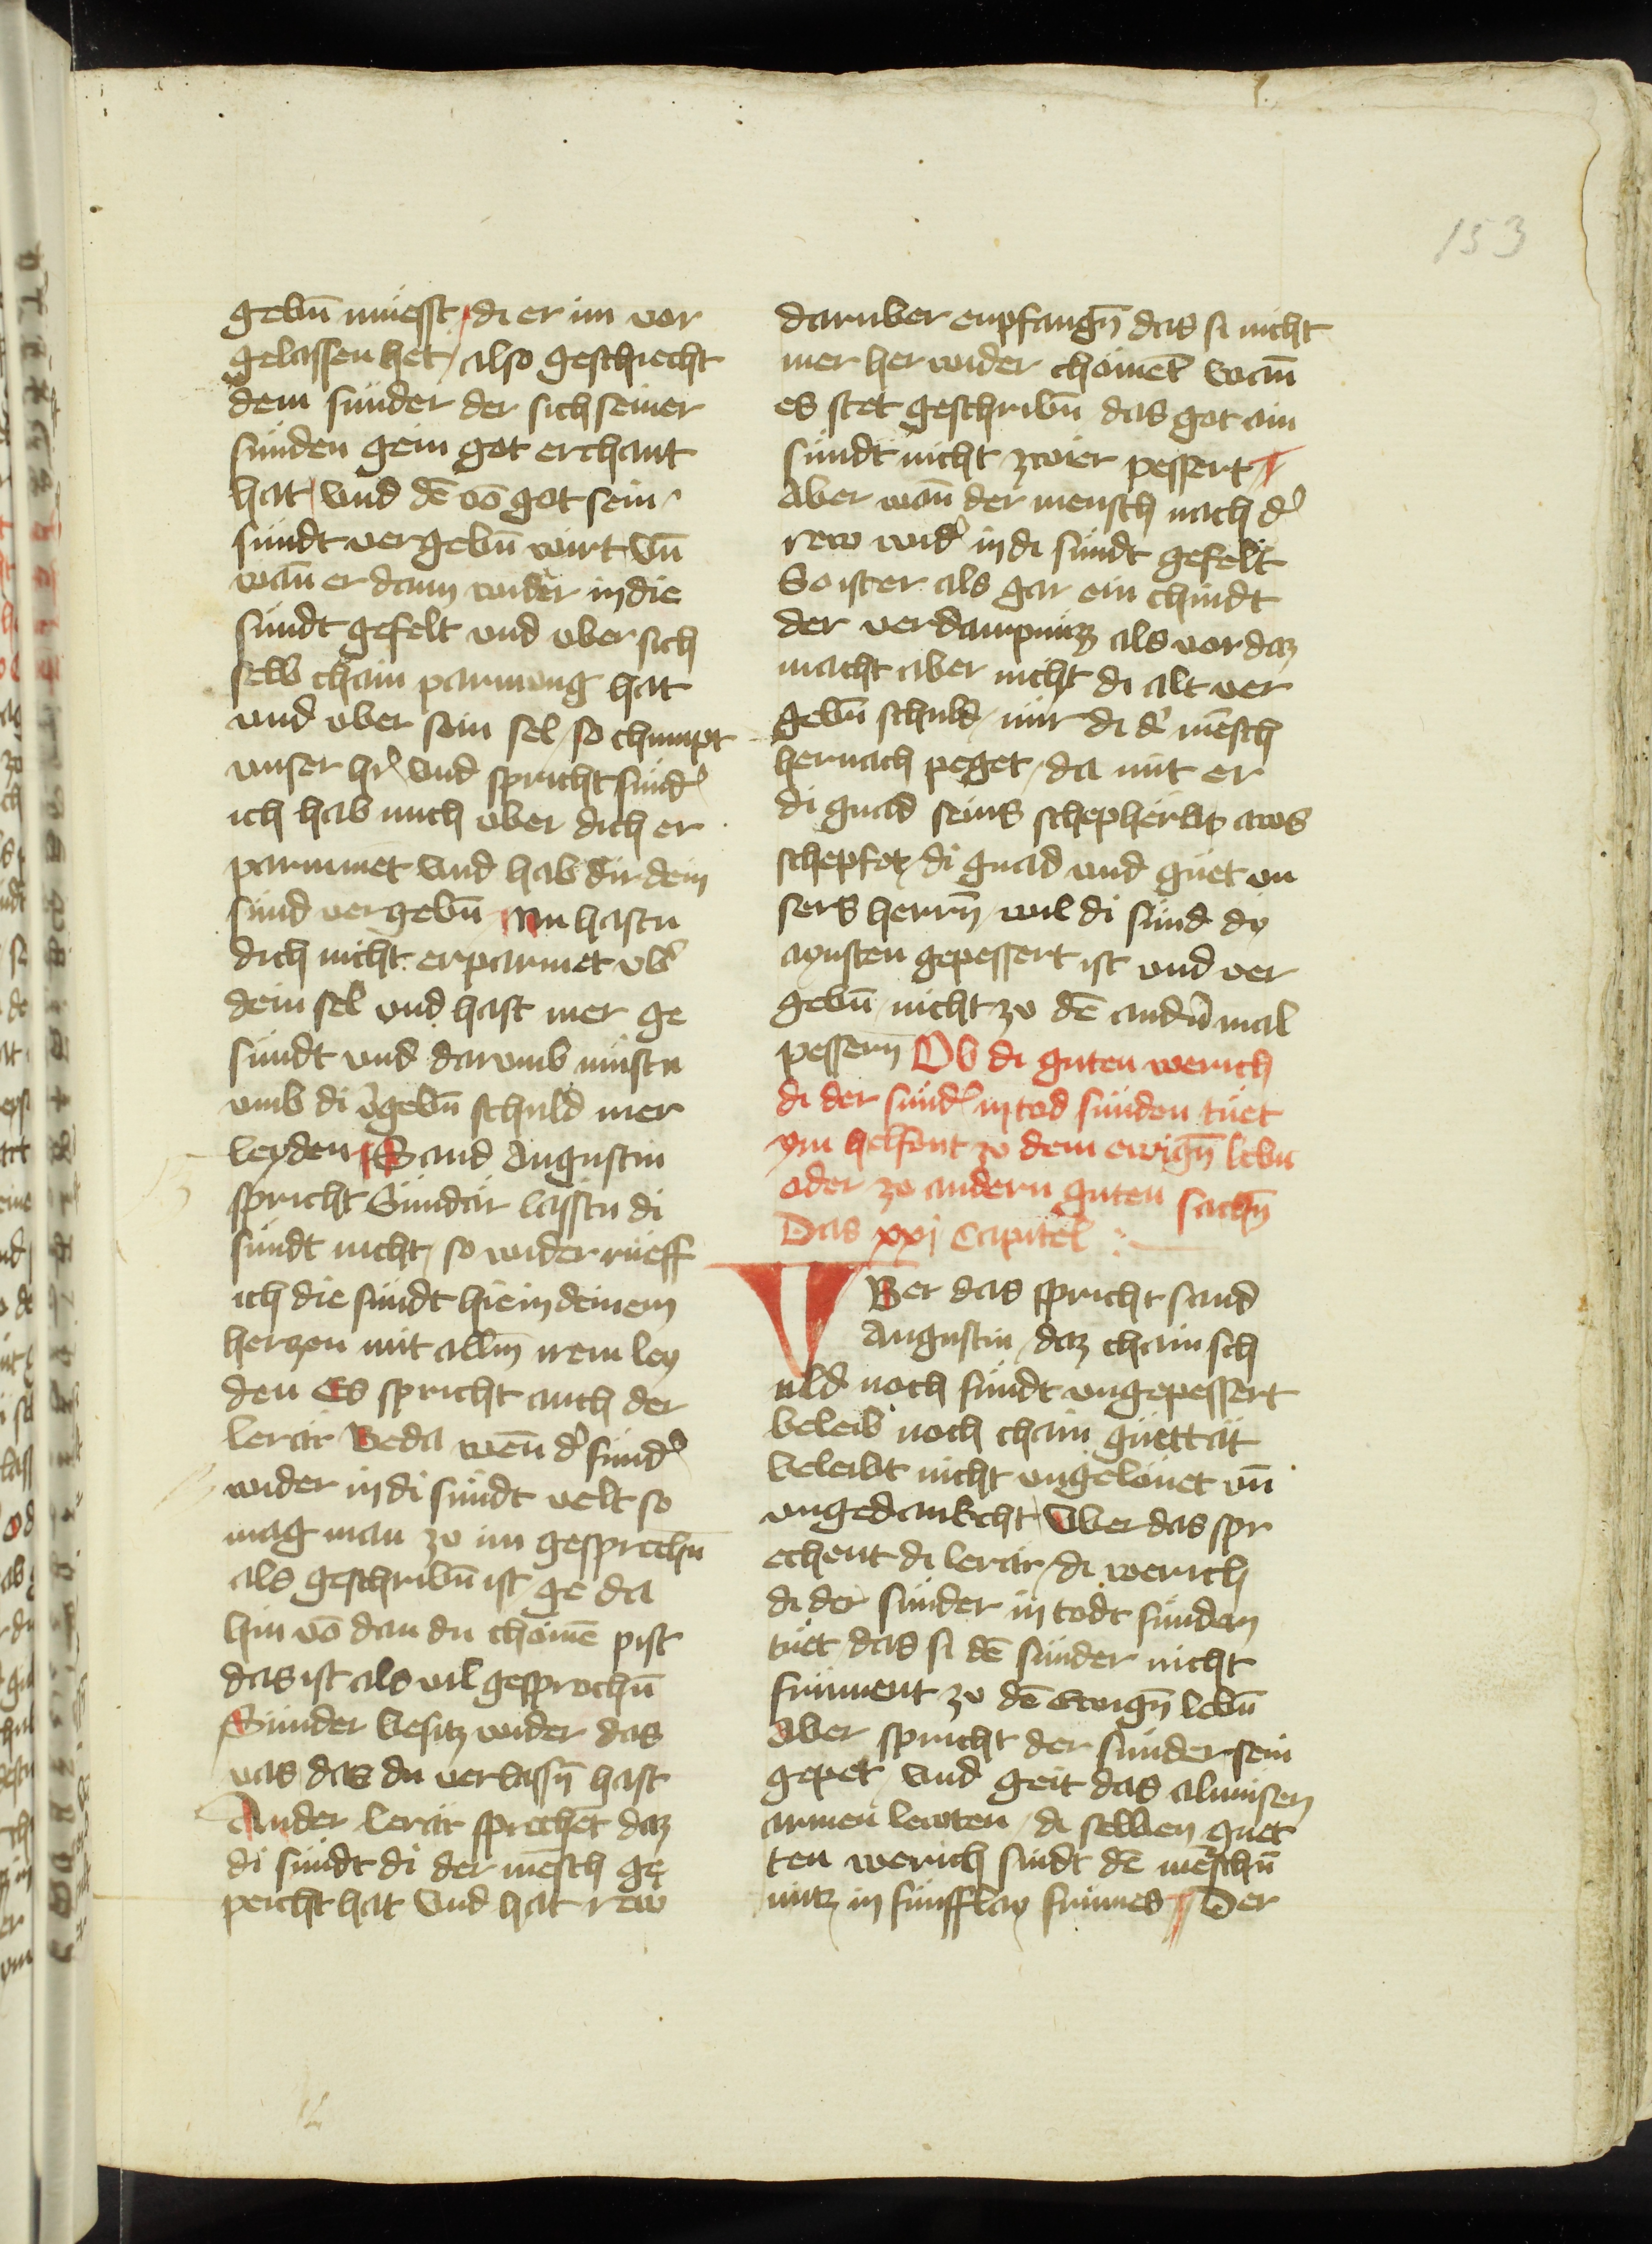 153
gebn̄ müesst di er im vor
gelassen het / also geschiecht
dem sünder der sich seiner
sünden gein got erchant
hat und dē vō got sein
sündt vergebn̄ wirt Vn̄
wan̄ er dann wider in die
sündt gefelt und vber sich
selb chain parmung hat
und vber sein sel / so chumpt
vnser hr̓ und spricht sünd̓
ich hab mich vber dich er
parmmet und hab dir dein
sünd vergebn̄ Nu hastu
dich nicht erparmet vb̓
dein sel und hast mer ge
sündt und darvmb müstu
vmb di v̓gebn̄ schuld mer
leyden Sand Augustin
spricht Sündär lasstu di
sündt nicht / so wider rüeff
ich die sündt hie in deinem
herzen mit alln̄ irem ley
den Es spricht auch der
lerär Beda wen̄ d̓ sünd̓
wider in di sündt velt so
mag man zu im gesprechn̄
als geschribn̄ ist / ge da
hin vō dan du chömē pist
das ist als vil gesprochn̄
Sünder besitz wider das
vas das du verlassn̄ hast
Ander lerär sprechēt daz
di sündt di der mēsch ge
peicht hat und hat rew
daruber enpfangn̄ das si nicht
mer her wider chömēt wan̄
es stet geschribn̄ das got ain
sündt nicht zwier pessert
Aber wan̄ der mensch nach d̓
rew wid̓ in di sündt gefelt
So ist er als gar ein chindt
der verdampnüz als vor daz
macht aber nicht di alt ver
gebn̄ schuld / nür di d̓ mēsch
hernach peget / da mit er
di gnad seins schephers aws
schepfet / di gnad und güet vn
sers herrn̄ / wil di sünd dy
aynsten gepessert ist und ver
gebn̄ / nicht zu dē andn̄ mal
pessern̄ Ob di guten werich
di der sünd̓ in tod sünden tüet
ym helfent zu dem ewign̄ lebn
oder zu andern guten sachn̄
Das xxj Capitel :
VBer das spricht sand
Augustin / daz chain sch
uld noch sündt ungepessert
beleib noch chain güettät
beleibt nicht vngelönet vn̄
vngedankcht Vber das spr
echent di lerär / di werich
di der sünder in todt sünden
tüet / das si dē sünder nicht
früment zu dē Ewign̄ lebn̄
Aber spricht der sünder sein
gepet / und geit das almüsen
armen lewten / di selben guet
ten werich sindt dē mēschn̄
nütz in fünfflay frümes Der